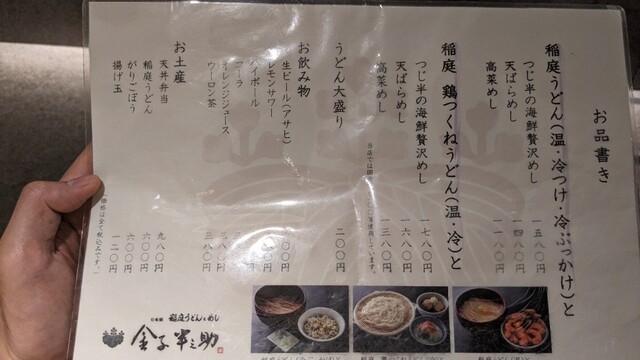 お品書き
稲庭うどん(温・冷つけ・冷ぶっかけ)と
つじ半の海鮮贅沢めし 一五八〇円
天ばらめし 一四八〇円
高菜めし 一一八〇円
稲庭 鶏つくねうどん(温・冷)と
つじ半の海鮮贅沢めし 一七八〇円
天ばらめし 一六八〇円
高菜めし 一三八〇円
うどん大盛り 二〇〇円
お飲み物
生ビール(アサヒ)
レモンサワー
ハイボール
コーラ
オレンジジュース
ウーロン茶 三八〇円
お土産
天丼弁当 九八〇円
稲庭うどん 六〇〇円
がりごぼう 六〇〇円
揚げ玉 一二〇円
(価格は全て税込みです。)
日本橋 稲庭うどんとめし
金子半之助